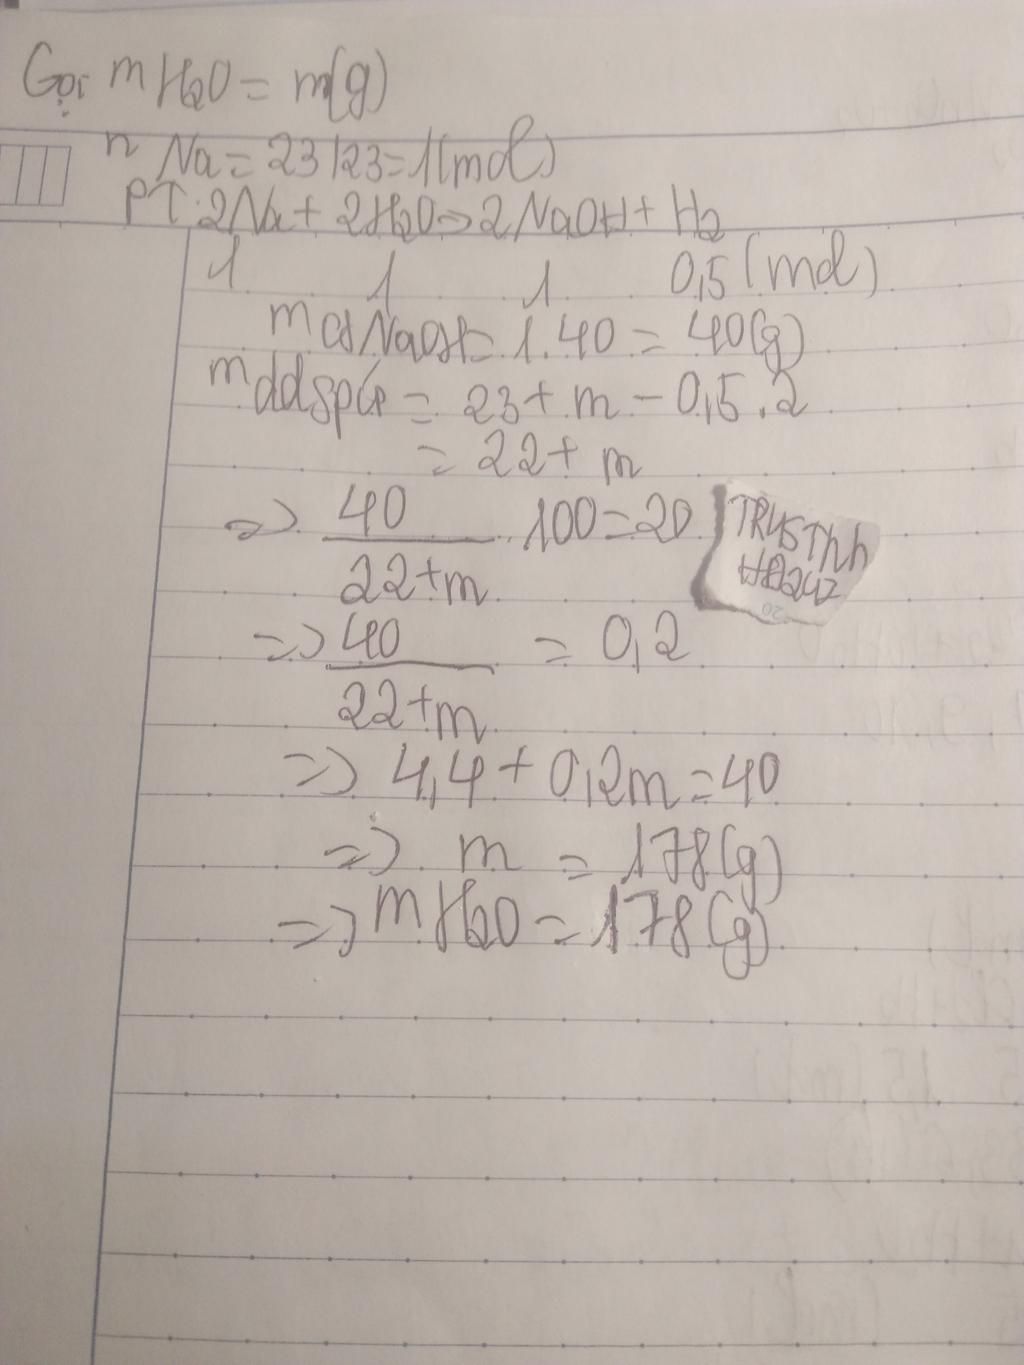 Gọi mH2O = m(g)
nNa = 23/23 = 1(mol)
PT: 2Na + 2H2O => 2NaOH + H2
1 1 1 0,5 (mol)
mctNaOH = 1.40 = 40(g)
mddspứ = 23 + m - 0,5.2
= 22 + m
=> 40/22+m . 100 = 20
TRUSTnh
HD247
=> 40/22+m = 0,2
=> 4,4 + 0,2m = 40
=> m = 178(g)
=> mH2O = 178(g)